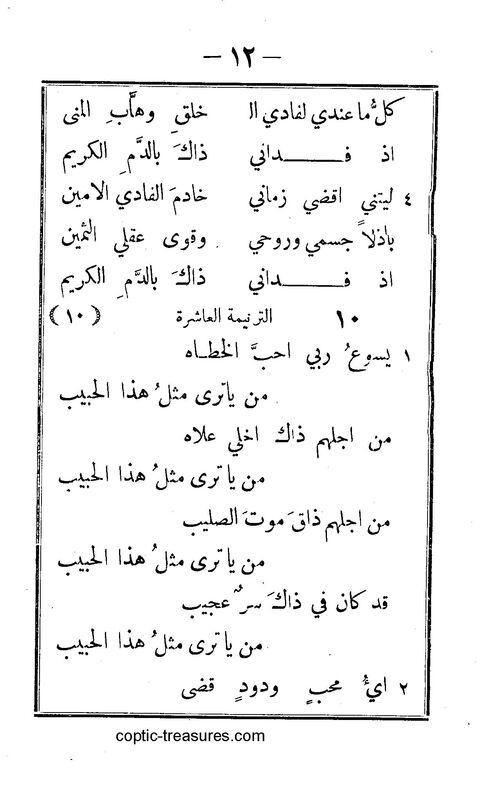 – ١٢ –
كلُّ ما عندي لفادي الـ خلقِ وهَّابِ المنى
اذ فـــــــداني ذاكَ بالدَّمِ الكريم
٤ ليتني اقضي زماني خادمَ الفادي الامين
باذلاً جسمي وروحي وقوى عقلي الثمين
اذ فـــــــداني ذاكَ بالدَّمِ الكريم
١٠ الترنيمة العاشرة (١٠)
١ يسوعُ ربي احبَّ الخطـاه
من ياترى مثلُ هذا الحبيب
من اجلهم ذاك اخلي علاه
من ياترى مثلُ هذا الحبيب
من اجلهم ذاقَ موتَ الصليب
من ياترى مثلُ هذا الحبيب
قد كان في ذاكَ سرٌّ عجيب
من ياترى مثلُ هذا الحبيب
٢ ايُّ محبٍ ودودٍ قضى
coptic-treasures.com